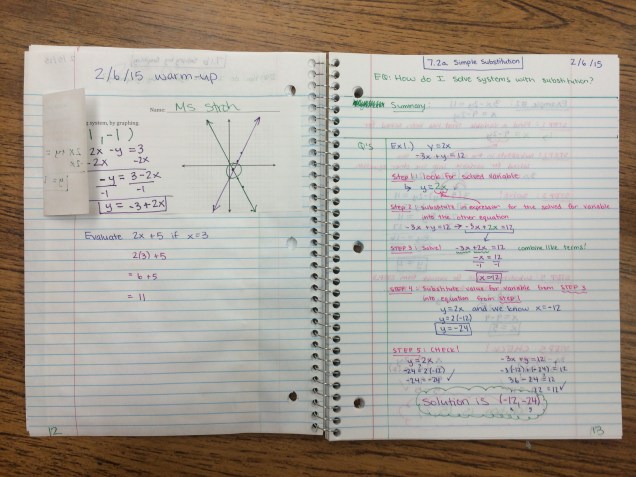 2/6/15 warm-up
Name: Ms. Stroh
system, by graphing.
1, -1)
2x - y = 3
-2x -2x
-y = 3 - 2x
-1 -1
y = -3 + 2x
Evaluate 2x + 5 if x = 3
2(3) + 5
= 6 + 5
= 11
12
7.2a Simple Substitution
2/6/15
EQ: How do I solve systems with substitution?
Summary
Q's
Ex 1.) y = 2x
-3x + y = 12
Step 1: look for solved variable
↳ y = 2x
Step 2: substitute expression for the solved for variable
into the other equation
-3x + y = 12 → -3x + 2x = 12
STEP 3: Solve! -3x + 2x = 12 combine like terms!
-x = 12
-1 -1
x = -12
STEP 4: Substitute value for variable from STEP 3
into equation from STEP 1
y = 2x and we know x = -12
y = 2(-12)
y = -24
STEP 5: CHECK!
y = 2x -3x + y = 12
-24 = 2(-12) -3(-12) + (-24) = 12
-24 = -24 ✓ 36 - 24 = 12
12 = 12 ✓
Solution is (-12, -24)
x y
13